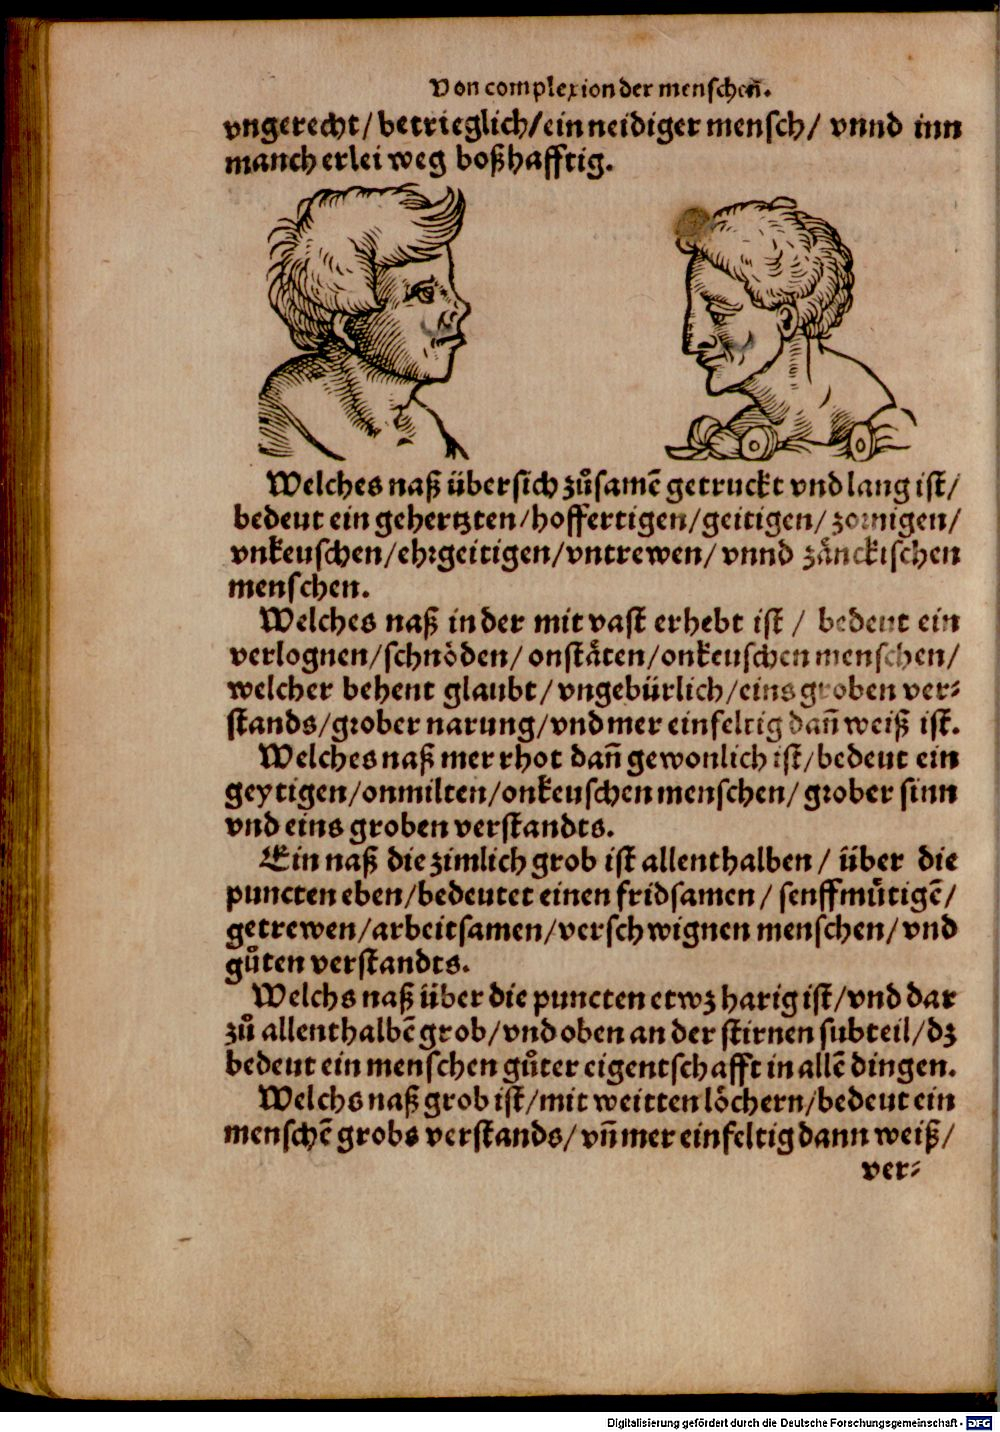 Von complexion der menschen̄.
vngerecht/ betrieglich/ ein neidiger mensch/ vnnd inn
mancherlei weg boßhafftig.
Welches naß übersich zůsamē getruckt vnd lang ist/
bedeut ein gehertzten/hoffertigen/geitigen/ zornigen/
vnkeuschen/ehrgeitigen/vntrewen/ vnnd zänckischen
menschen.
Welches naß in der mit vast erhebt ist / bedeut ein
verlognen/schnöden/ onstäten/onkeuschen menschen/
welcher behent glaubt/ vngebürlich/eins groben ver⸗
stands/grober narung/vnd mer einfeltig dañ weiß ist.
Welches naß mer rhot dañ gewonlich ist/bedeut ein
geytigen/onmilten/onkeuschen menschen/ grober sinn
vnd eins groben verstandts.
Ein naß die zimlich grob ist allenthalben / über die
puncten eben/bedeutet einen fridsamen / senffmütigē/
getrewen/arbeitsamen/verschwignen menschen/ vnd
gůten verstandts.
Welchs naß über die puncten etwz harig ist/vnd dar
zů allenthalbē grob/vnd oben an der stirnen subteil/dz
bedeut ein menschen gůter eigentschafft in allē dingen.
Welchs naß grob ist/mit weitten löchern/bedeut ein
menschē grobs verstands/ vñ mer einfeltig dann weiß/
ver⸗
Digitalisierung gefördert durch die Deutsche Forschungsgemeinschaft - DFG